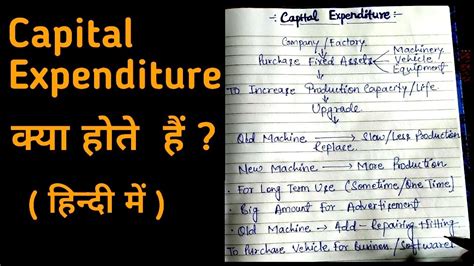 Capital
Expenditure
क्या होते हैं ?
( हिन्दी में )
-: Capital Expenditure :-
Company / Factory
Purchase Fixed Assets
Machinery
Vehicle
Equipment
To Increase Production Capacity / Life
Upgrade
Old Machine → Slow / Less Production
Replace
New Machine → More Production
• For Long Term Use (Sometime / One Time)
• Big Amount for Advertisement
• Old Machine → Add - Repairing + Fitting
To Purchase Vehicle for Business / Software